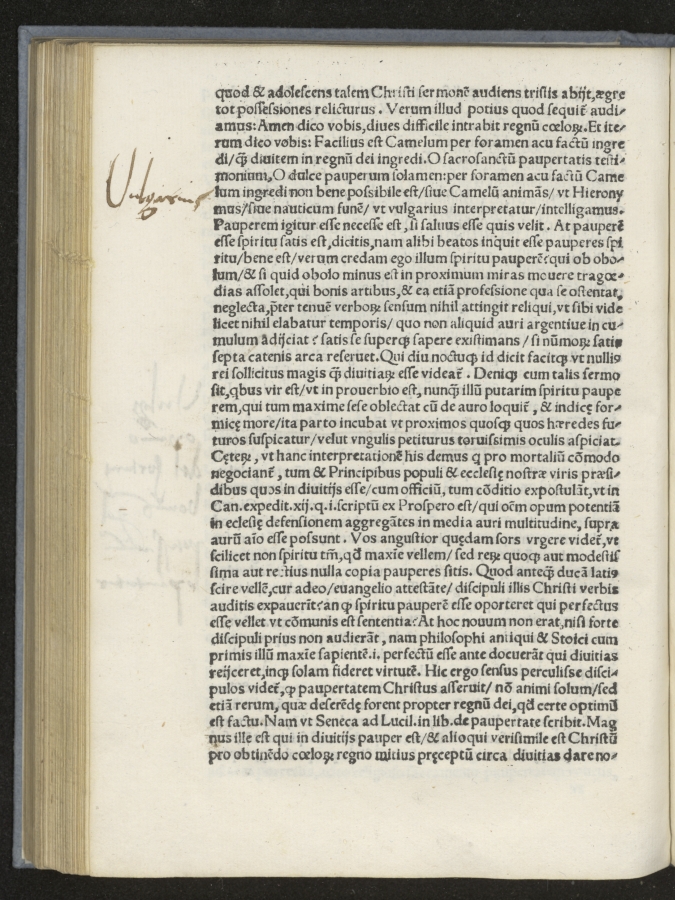 quod & adolescens talem Christi sermonē audiens tristis abijt, ægre
tot possessiones relicturus. Verum illud potius quod sequit̄ audi-
amus: Amen dico vobis, diues difficile intrabit regnū cœloꝝ. Et ite-
rum dico vobis: Facilius est Camelum per foramen acu factū ingre
di/ꝙ̄ diuitem in regnū dei ingredi. O sacrosanctū paupertatis testi-
monium, O dulce pauperum solamen: per foramen acu factū Came
lum ingredi non bene possibile est/siue Camelū animās/ vt Hierony
Vulgarius
mus/siue nauticum funē/ vt vulgarius interpretatur/intelligamus.
Pauperem igitur esse necesse est, si saluus esse quis velit. At pauperē
esse spiritu satis est, dicitis, nam alibi beatos inquit esse pauperes spi
ritu/bene est/verum credam ego illum spiritu pauperē? qui ob obo-
lum/& si quid obolo minus est in proximum miras mouere tragœ-
dias assolet, qui bonis artibus, & ea etiā professione qua se ostentat,
neglecta, p̄ter tenuē verboꝝ sensum nihil attingit reliqui, vt sibi vide
licet nihil elabatur temporis/ quo non aliquid auri argentiue in cu-
mulum adijciat? satis se superꝙ sapere existimans/ si nūmoꝝ satis
septa catenis arca reseruet. Qui diu noctuꝙ id dicit facitꝙ vt nullis
rei sollicitus magis ꝙ̄ diuitiaꝝ esse videat̄. Deniꝙ cum talis sermo
sit, qbus vir est/vt in prouerbio est, nunꝙ̄ illū putarim spiritu paupe
rem, qui tum maxime sese oblectat cū de auro loquit̄, & indicę for-
micę more/ita parto incubat vt proximos quosꝙ quos hæredes fu-
turos suspicatur/velut vngulis petiturus toruissimis oculis aspiciat.
Cęteꝝ, vt hanc interpretationē his demus q pro mortaliū cōmodo
negociant̄, tum & Principibus populi & ecclesię nostræ viris præsi-
dibus quos in diuitijs esse/cum officiū, tum cōditio expostulāt, vt in
Can. expedit. xij. q. i. scriptū ex Prospero est/ qui oēm opum potentiā
in eclesię defensionem aggregātes in media auri multitudine, supra
aurū aīo esse possunt. Vos angustior quędam sors vrgere videt̄, vt
scilicet non spiritu tm̄, qđ maxīe vellem/ sed reꝝ quoꝙ aut modestis
sima aut rectius nulla copia pauperes sitis. Quod anteꝙ̄ ducā latis
scire vellē, cur adeo/euangelio attestāte/ discipuli illis Christi verbis
auditis expauerīt? an ꝙ spiritu pauperē esse oporteret qui perfectus
esse vellet vt cōmunis est sententia? At hoc nouum non erat, nisi forte
discipuli prius non audierāt, nam philosophi antiqui & Stoici cum
primis illū maxīe sapientē .i. perfectū esse ante docuerāt qui diuitias
reijceret, inꝙ solam fideret virtutē. Hic ergo sensus perculisse disci-
pulos videt̄, ꝙ paupertatem Christus asseruit/ nō animi solum/sed
etiā rerum, quæ deserēdę forent propter regnū dei, qđ certe optimū
est factu. Nam vt Seneca ad Lucil. in lib. de paupertate scribit. Mag
nus ille est qui in diuitijs pauper est/& alioqui verisimile est Christū
pro obtinēdo cœloꝝ regno mitius pręceptū circa diuitias dare no-